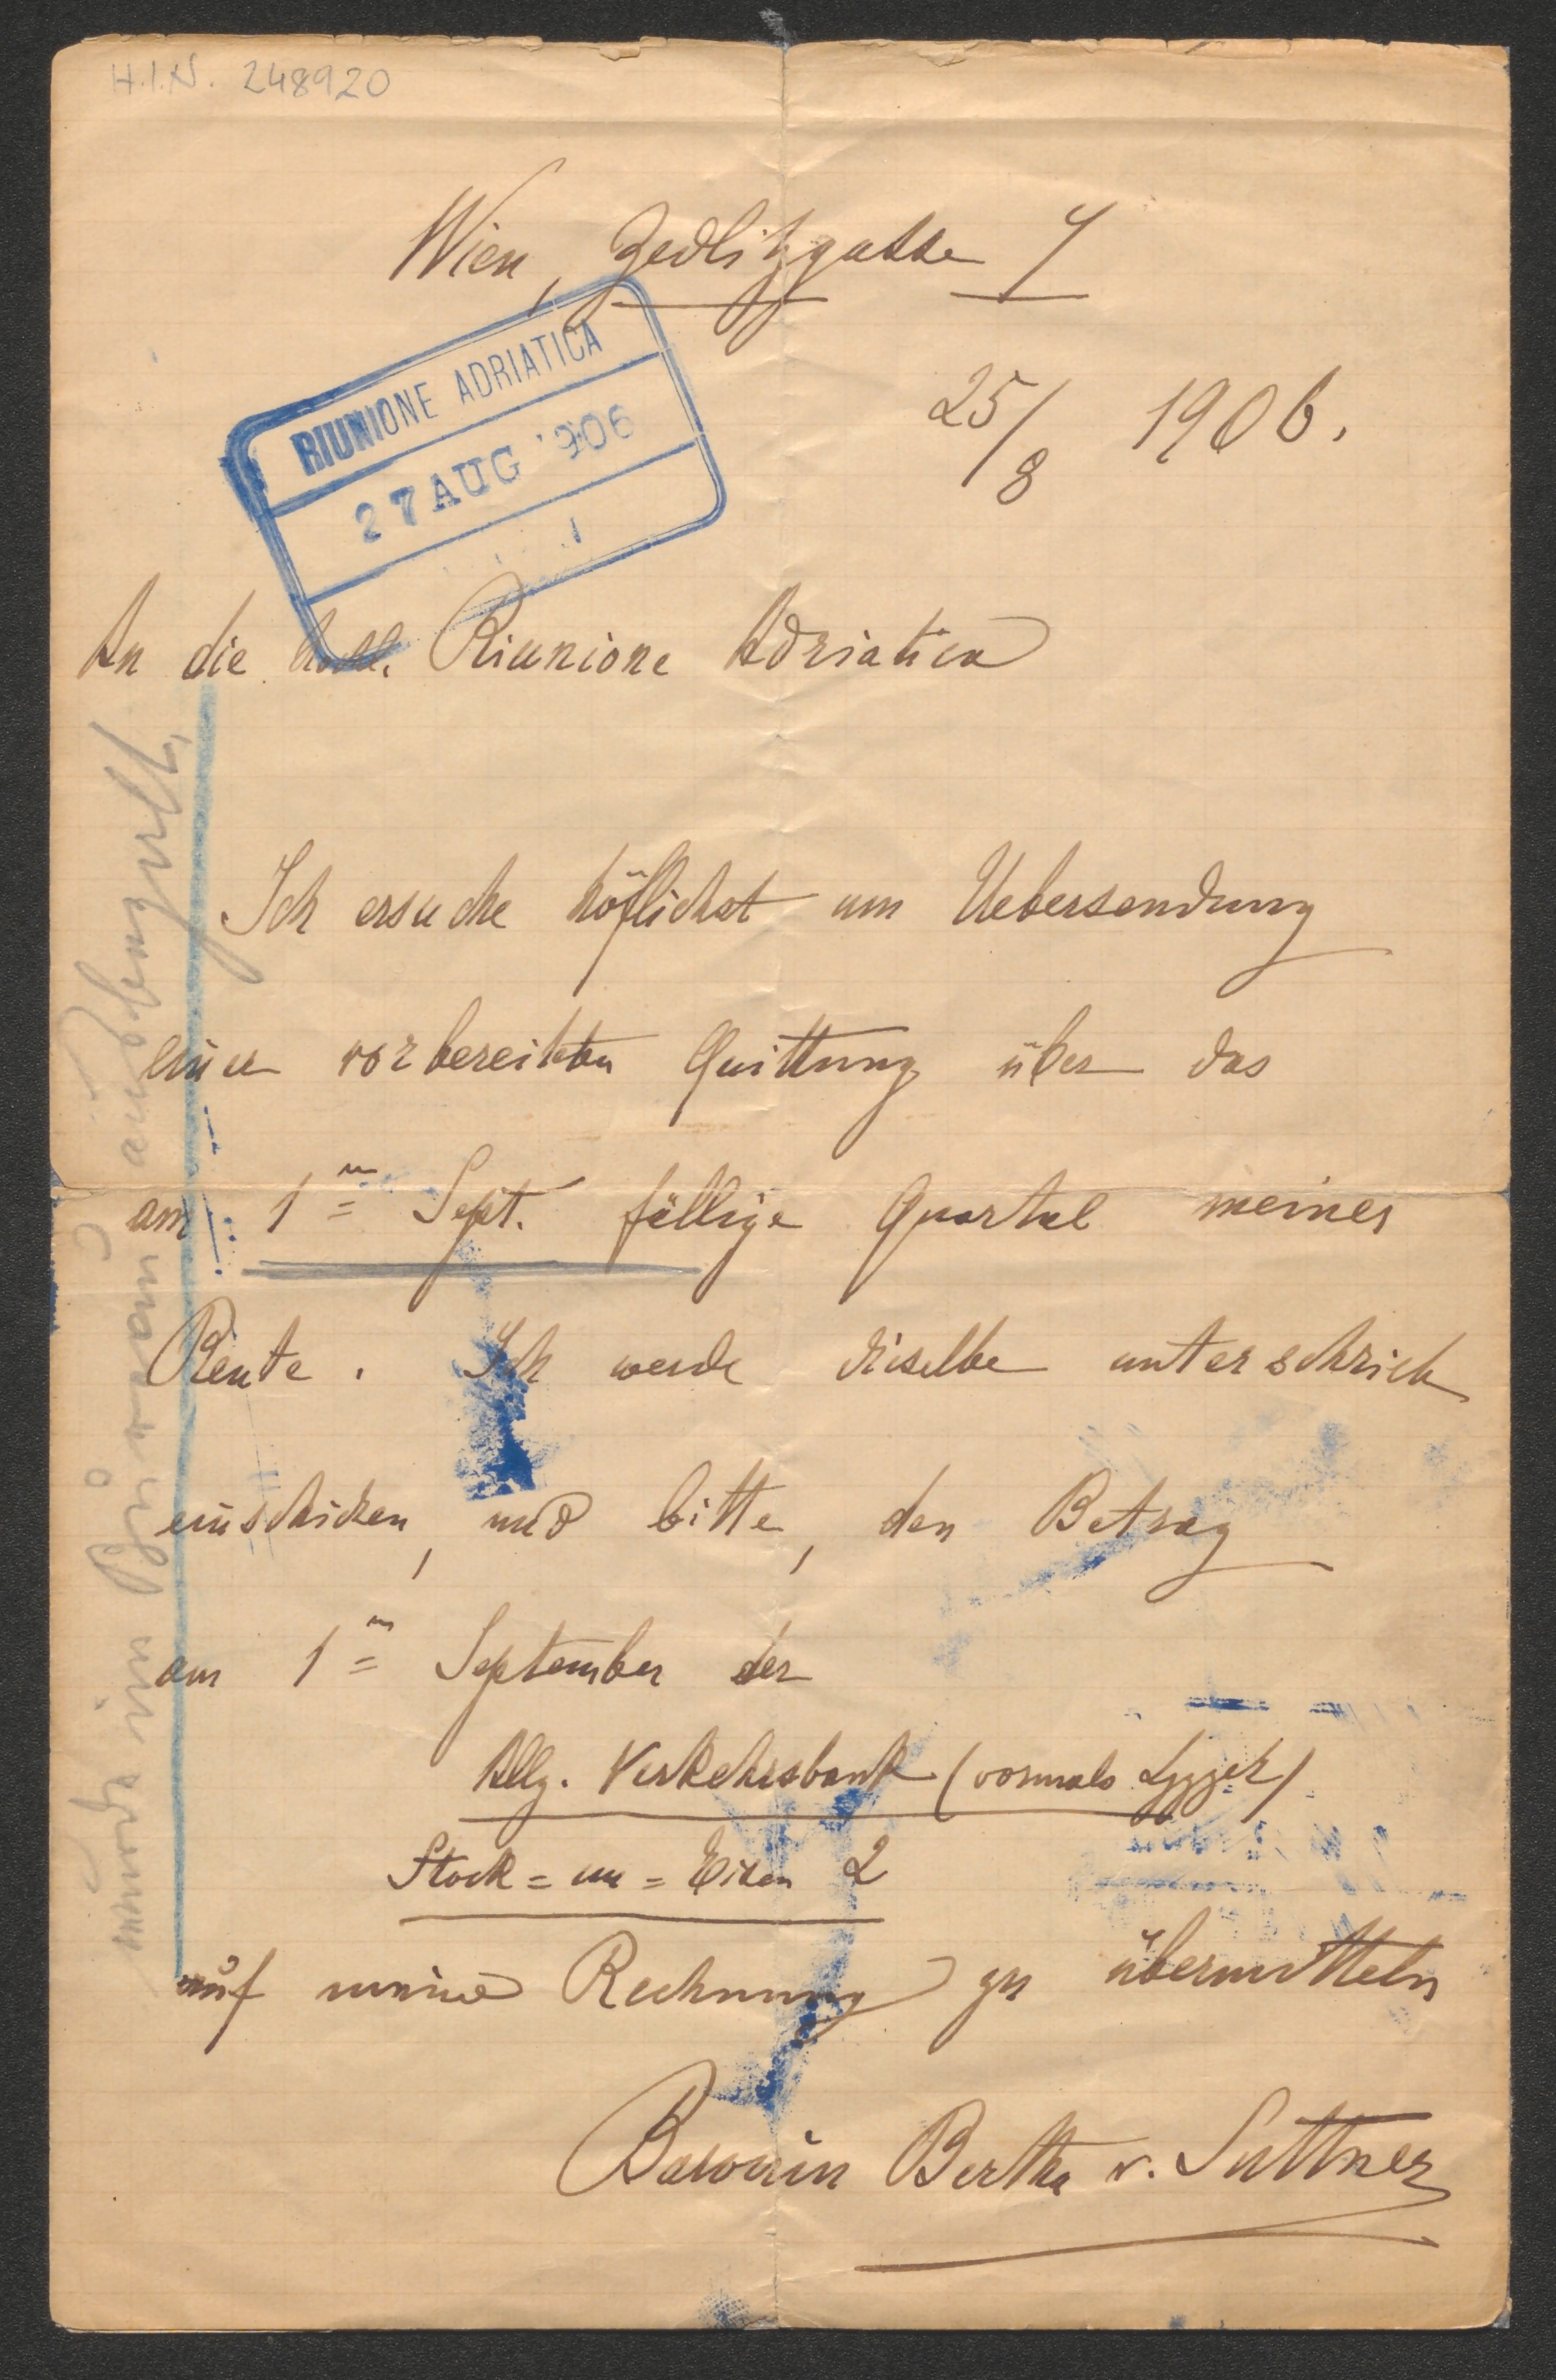 H.I.N. 248920
Wien, Zedlitzgasse 7
25/8 1906.
RIUNIONE ADRIATICA
27 AUG 906
An die Riunione Adriatica
Ich ersuche höflichst um Uebersendung
einer vorbereiteten Quittung über das
am 1m= Sept. fällige Quartal meiner
Rente. Ich werde dieselbe unterschrieb
einschicken, und bitte, den Betrag
am 1m= September der
Allg. Verkehrsbank (vormals
Stock=im=Eisen 2
auf meine Rechnung zu übermitteln
Baronin Bertha v. Suttner